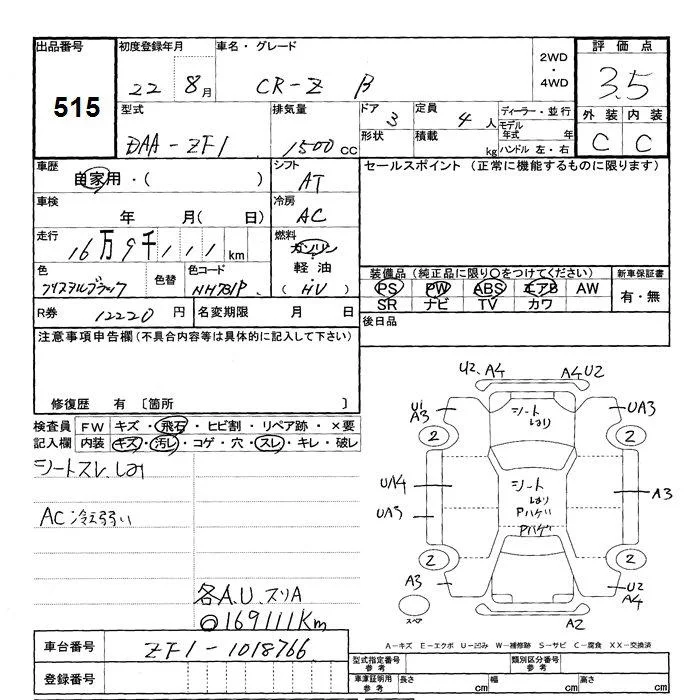 出品番号 初度登録年月 車名・グレード 評価点
515
22 8月 CR-Z β 2WD・4WD 3.5
型式 排気量 ドア 3 定員 4人 ディーラー・並行 外装 内装
DAA-ZF1 1500cc 形状 積載 kg モデル年式 年 ハンドル 左・右 C C
車歴 自家用・( ) シフト AT セールスポイント (正常に機能するものに限ります)
車検 年 月( 日) 冷房 AC
走行 16万9千111km 燃料 ガソリン・軽油・(HV)
色 クリスタルブラック 色替 色コード NH731P
装備品 (純正品に限り○をつけてください) 新車保証書
PS PW ABS エアB AW 有・無
SR ナビ TV カワ
R券 12220円 名変期限 月 日 後日品
注意事項申告欄(不具合内容等は具体的に記入して下さい)
修復歴 有 〔箇所 〕
検査員 FW キズ・飛石・ヒビ割・リペア跡・×要
記入欄 内装 キズ・汚レ・コゲ・穴・スレ・キレ・破レ
シートスレ、しみ
AC冷え弱い
各A.U.スリA
169111Km
U2、A4 A4U2
U1 A3 シート しみ UA3
2 2
UA4 シート しみ A3
UA3 Pハゲ
Pハゲ
2 2
A3 U2 A4
スペア A2
A-キズ E-エクボ U-凹み W-補修跡 S-サビ C-腐食 XX-交換済
車台番号 ZF1-1018766
登録番号
型式指定番号 参考 類別区分番号 参考
車庫証明用 参考 長さ cm 幅 cm 高さ cm